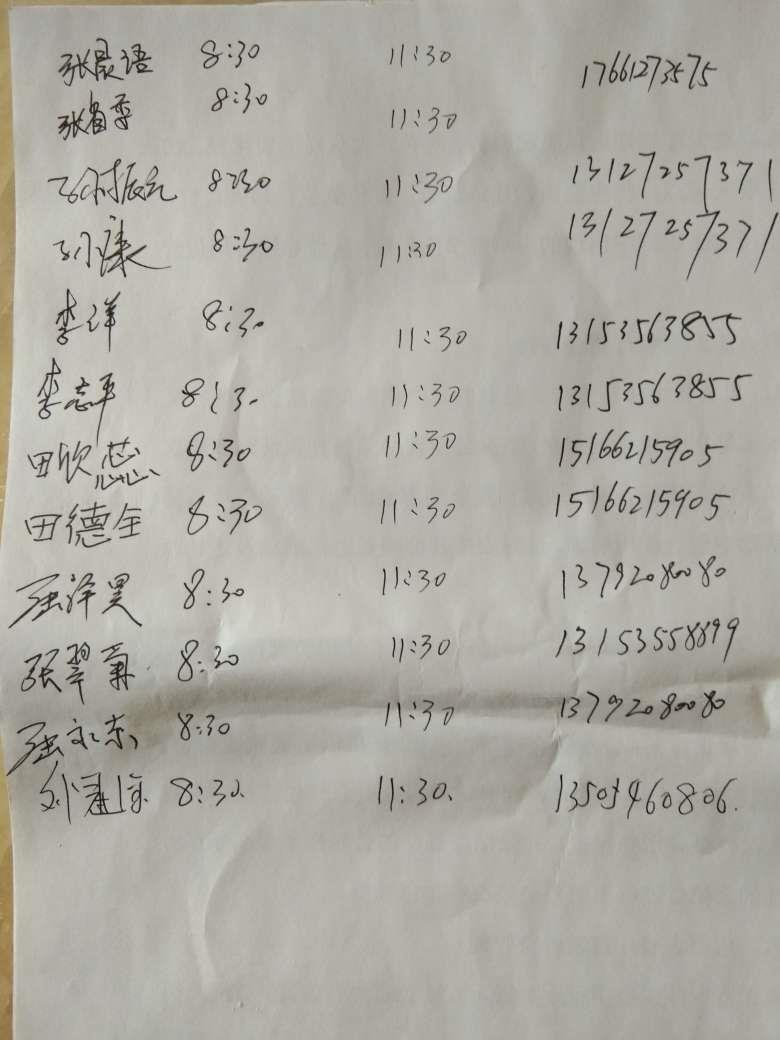 张晨语 8:30 11:30 17661273575
张 季 8:30 11:30
孙振元 8:30 11:30 13127257371
孙康 8:30 11:30 13127257371
李洋 8:30 11:30 13153563855
李志平 8:30 11:30 13153563855
田欣蕊 8:30 11:30 15166215905
田德全 8:30 11:30 15166215905
屈泽昊 8:30 11:30 13792080080
张翠菊 8:30 11:30 13153558899
屈永东 8:30 11:30 13792080080
刘 8:30. 11:30. 13505460806.